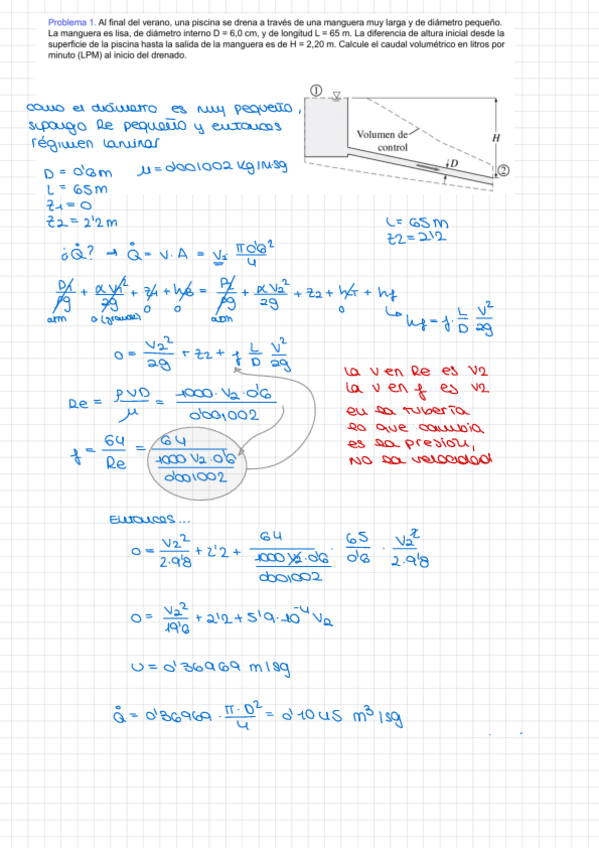 Problema 1. Al final del verano, una piscina se drena a través de una manguera muy larga y de diámetro pequeño.
La manguera es lisa, de diámetro interno D = 6,0 cm, y de longitud L = 65 m. La diferencia de altura inicial desde la
superficie de la piscina hasta la salida de la manguera es de H = 2,20 m. Calcule el caudal volumétrico en litros por
minuto (LPM) al inicio del drenado.
como el diámetro es muy pequeño,
supongo Re pequeño y entonces
régimen laminar
①
Volumen de
control
H
D
②
D = 0'6m μ = 0'001002 Kg/m·sg
L = 65m
z1 = 0
z2 = 2'2m
L = 65m
z2 = 2'2
¿Q̊? → Q̊ = V·A = V2 · π0'6²/4
P1/ρg + αV1²/2g + z1 + hB = P2/ρg + αV2²/2g + z2 + hT + hf
atm 0 (grande) 0 0 atm 0
hf = f · L/D · V²/2g
0 = V2²/2g + z2 + f L/D V²/2g
Re = ρVD/μ = 1000·V2·0'6/0'001002
f = 64/Re = 64/(1000 V2·0'6/0'001002)
la V en Re es V2
la V en f es V2
en la tubería
lo que cambia
es la presión,
NO la velocidad
Entonces...
0 = V2²/2·9'8 + 2'2 + 64/(1000 V2·0'6/0'001002) · 65/0'6 · V2²/2·9'8
0 = V2²/19'6 + 2'2 + 5'9·10⁻⁴ V2
v = 0'36969 m/sg
Q̊ = 0'36969 · π·D²/4 = 0'1045 m³/sg